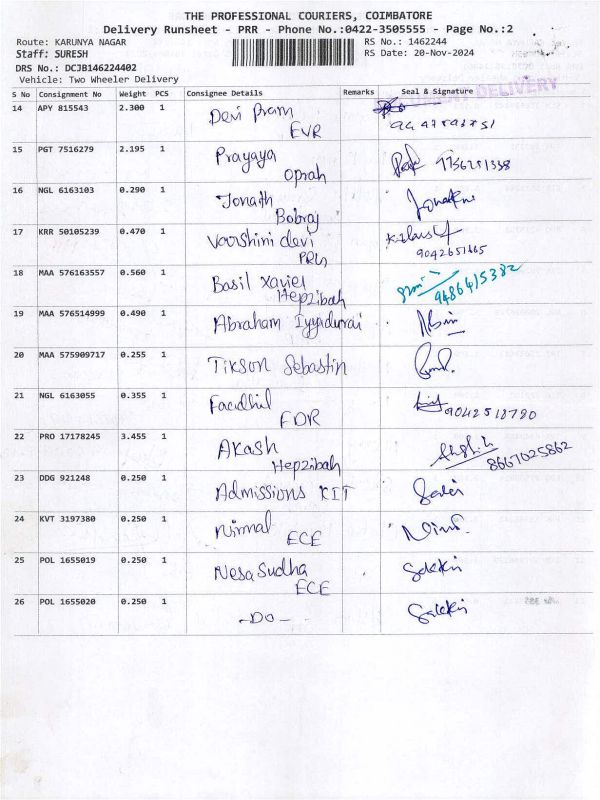 THE PROFESSIONAL COURIERS, COIMBATORE
Delivery Runsheet - PRR - Phone No.:0422-3505555 - Page No.:2
Route: KARUNYA NAGAR RS No.: 1462244
Staff: SURESH RS Date: 20-Nov-2024
DRS No.: DCJB146224402
Vehicle: Two Wheeler Delivery
S No Consignment No Weight PCS Consignee Details Remarks Seal & Signature
DELIVERY
14 APY 815543 2.300 1 Devi Pram
EVR
15 PGT 7516279 2.195 1 Prayaya
Oprah
16 NGL 6163103 0.290 1 Jonath
Bobray
17 KRR 50105239 0.470 1 Varshini devi
PRLs 9042651665
18 MAA 576163557 0.560 1 Basil Xavier
Hepzibah 9486415382
19 MAA 576514999 0.490 1 Abraham Iyyadurai
20 MAA 575909717 0.255 1 Tikson Sebastin
21 NGL 6163055 0.355 1 Facidhil
FDR 9042518790
22 PRO 17178245 3.455 1 Akash
Hepzibah 8667025862
23 DDG 921248 0.250 1 Admissions KIT
24 KVT 3197380 0.250 1 Nirmal
ECE
25 POL 1655019 0.250 1 Nesa Sudha
ECE
26 POL 1655020 0.250 1 -DO-